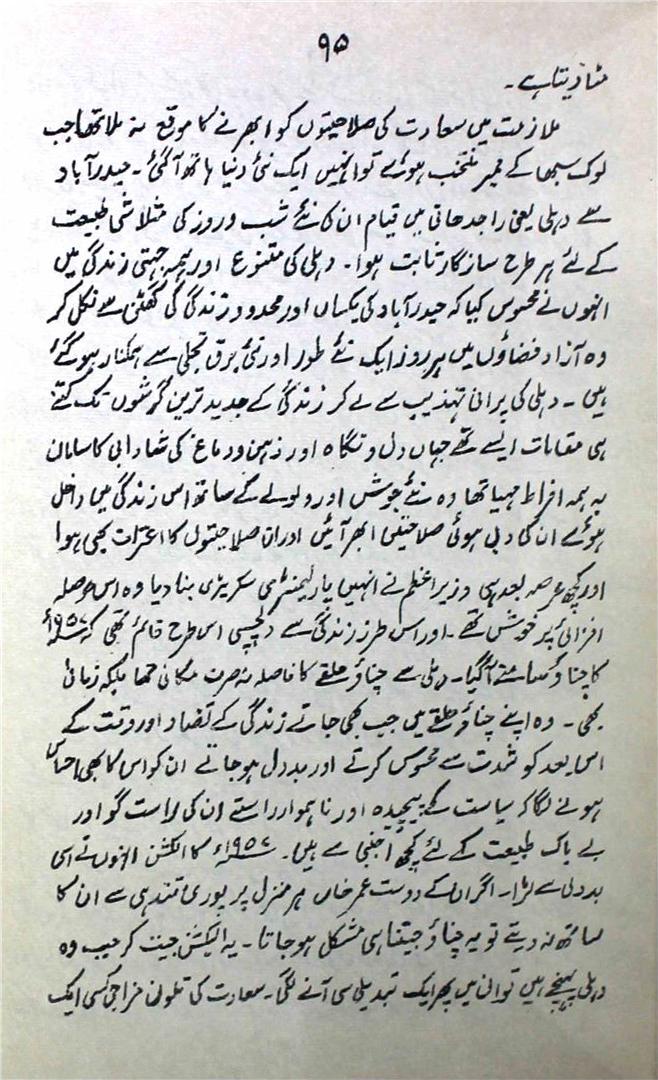 ۹۵
مٹا دیتا ہے۔
ملازمت میں سعادت کی صلاحیتوں کو ابھرنے کا موقع نہ ملا تھا جب
لوک سبھا کے ممبر منتخب ہوئے تو انہیں ایک نئی دنیا ہاتھ آ گئی۔ حیدرآباد
سے دہلی یعنی راجدھانی میں قیام ان کی نئے شب و روز کی متلاشی طبیعت
کے لئے ہر طرح سازگار ثابت ہوا۔ دہلی کی متنوع اور ہمہ جہتی زندگی میں
انہوں نے محسوس کیا کہ حیدرآباد کی یکساں اور محدود زندگی کی گھٹن سے نکل کر
وہ آزاد فضاؤں میں ہر روز ایک نئے طور اور نئی برق تجلی سے ہمکنار ہو گئے
ہیں۔ دہلی کی پرانی تہذیب سے لے کر زندگی کے جدید ترین گوشوں تک کتنے
ہی مقامات ایسے تھے جہاں دل و نگاہ اور ذہن و دماغ کی شادابی کا سامان
بہ ہمہ افراط مہیا تھا وہ نئے جوش اور ولولے کے ساتھ اس زندگی میں داخل
ہوئے ان کی دبی ہوئی صلاحیتیں ابھر آئیں اور ان صلاحیتوں کا اعتراف بھی ہوا
اور کچھ عرصہ بعد ہی وزیر اعظم نے انہیں پارلیمنٹری سکریٹری بنا دیا وہ اس حوصلہ
افزائی پر خوش تھے۔ اور اس طرز زندگی سے دلچسپی اس طرح قائم تھی کہ ۱۹۵۷ء
کا چناؤ سامنے آ گیا۔ دہلی سے چناؤ حلقے کا فاصلہ نہ صرف مکانی تھا بلکہ زمانی
بھی۔ وہ اپنے چناؤ حلقے میں جب بھی جاتے زندگی کے تضاد اور وقت کے
اس بعد کو شدت سے محسوس کرتے اور بددل ہو جاتے ان کو اس کا بھی احساس
ہونے لگا کہ سیاست کے پیچیدہ اور ناہموار راستے ان کی راست گو اور
بے باک طبیعت کے لئے کچھ اجنبی سے ہیں۔ ۱۹۵۷ء کا الکشن انہوں نے اسی
بددلی سے لڑا۔ اگر ان کے دوست عمر خاں ہر منزل پر پوری تندہی سے ان کا
ساتھ نہ دیتے تو یہ چناؤ جیتنا ہی مشکل ہو جاتا۔ یہ الیکشن جیت کر جب وہ
دہلی پہنچے ہیں تو ان میں پھر ایک تبدیلی سی آنے لگی۔ سعادت کی تلون مزاجی کسی ایک